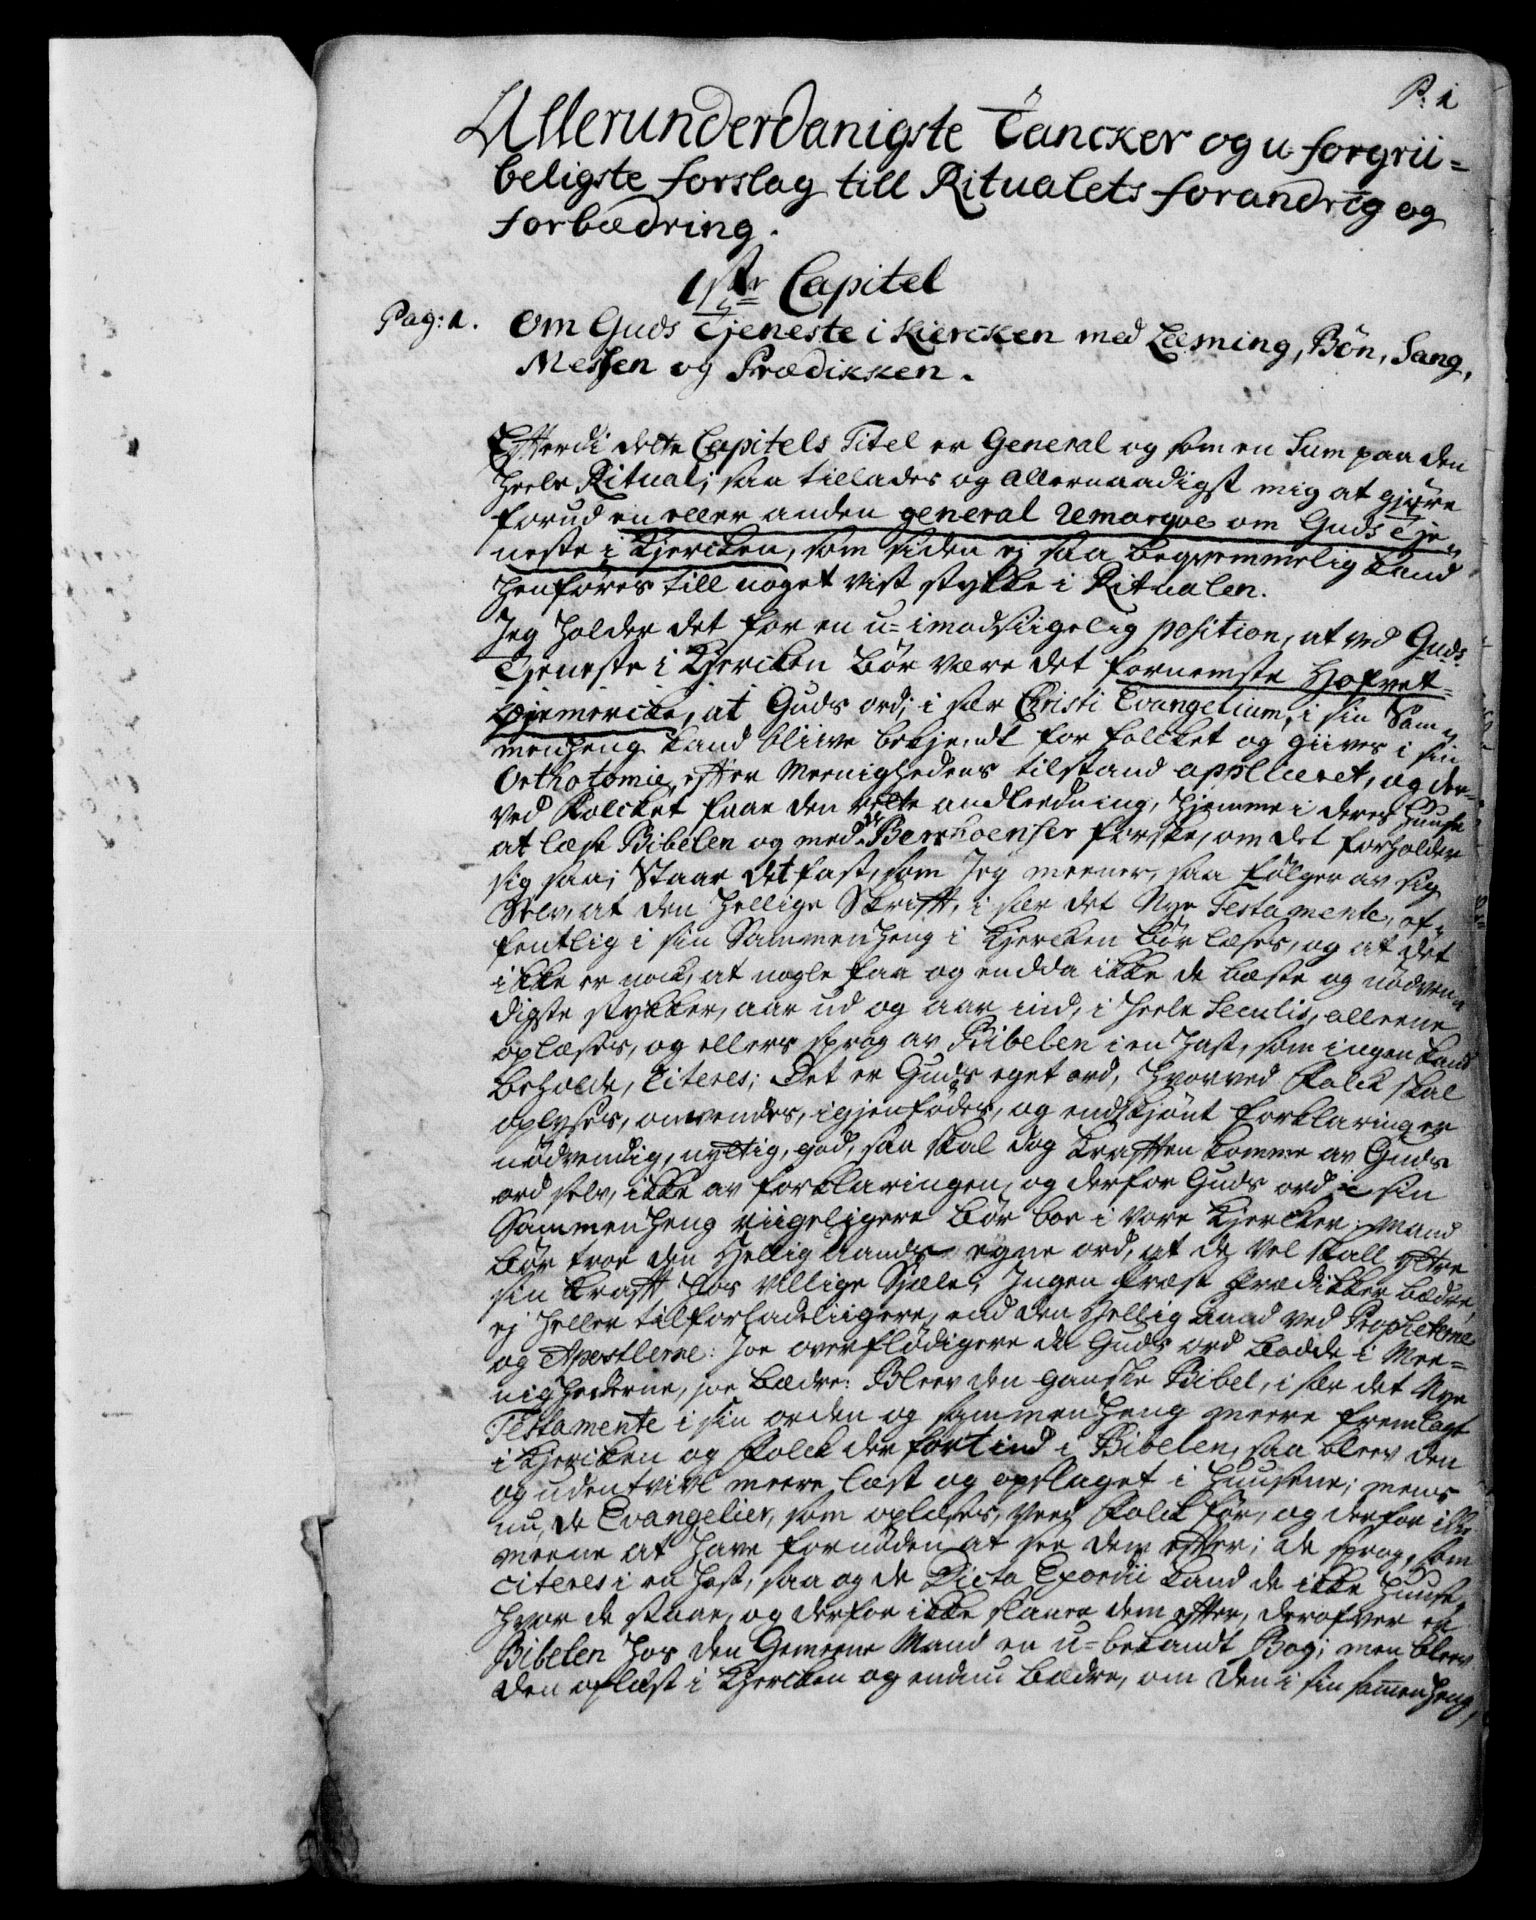 P. 1
Allerunderdanigste Tancker og u forgrii=
beligste forslag till Ritualets forandrig og
forbædring.
1ste Capitel
Pag: 1. Om Guds Tjeneste i Kiercken med Læsning, Bön, Sang,
Messen og Prædikken.
Efterdi dette Capitels Titel er General og som en Sum paa den
heele Ritual; saa tillades og allernaadigst mig at gjöre
forud en eller anden general Remarqve om Guds Tje=
neste i Kjercken, som siden ej saa beqvemmelig kand
henföres till noget vist stykke i Ritualen.
Jeg holder det for en u=imodsiigelig position, at ved Guds
Tjeneste i Kjercken bör være det fornemste Hofvet=
Øjemercke, at Guds ord, i sær Christi Evangelium, i sin Sam=
menheng kand bliive bekjendt for folcket og giives i sin
Orthotomie, efter Meenighedens tilstand appliceret, og der=
ved Folcket faae den rette andleedning, hjemme i deres Huuse
at læse Bibelen og med de Berrhoenser forske, om det forholder
sig saa; Staar det fast, som Jeg meener, saa fölger av sig
Selv, at den hellige Skrift, i sær det Nye Testamente, of=
fentlig i sin Sammenheng i Kjercken bör læses, og at det
ikke er nock, at nogle faa og endda ikke de bæste og nödven=
digste stykker, aar ud og aar ind, i heele Seculis, alleene
oplæses, og ellers sprog av Bibelen i en hast, som ingen kand
beholde, citeres; Det er Guds eget ord, hvorved Folck skal
oplyses, omvendes, igjenfödes, og endskjönt forklaring er
nödvendig, nyttig, god, saa skal dog krafften komme av Guds
ord selv, ikke av forklaringen, og derfor Guds ord i sin
Sammenheng riigeligere bör boe i vore Kjercker; Mand
bör troe den Hellig Aands egne ord, at de vel skall yttre
sin krafft hos villige Sjæle; Ingen Præst prædikker bædre,
ej heller tilforladeliigere, end den Hellig Aand ved Propheterne
og Apostlerne: Joe overflödigere da Guds ord boede i Mee=
nighederne, joe bædre: Bleev den gandske Bibel, i sær det Nye
Testamente i sin orden og sammenheng meere fremlagt
i Kjercken og Folck der fört ind i Bibelen, saa bleev den
og uden tvivl meere læst og opslaget i Huusene; mens
nu, de Evangelier, som oplæses, veed Folck för, og derfor ikke
meene at have fornöden at see dem efter; de sprog, som
citeres i en hast, saa og de Dicta Exordii kand de ikke huuse,
hvor de staae, og derfor ikke slaaer dem efter, derofver er
Bibelen hos den Gemeene Mand en u=bekandt Bog; men bleev
den oplæst i Kjercken og endnu bædre, om den i sin sammenheng,